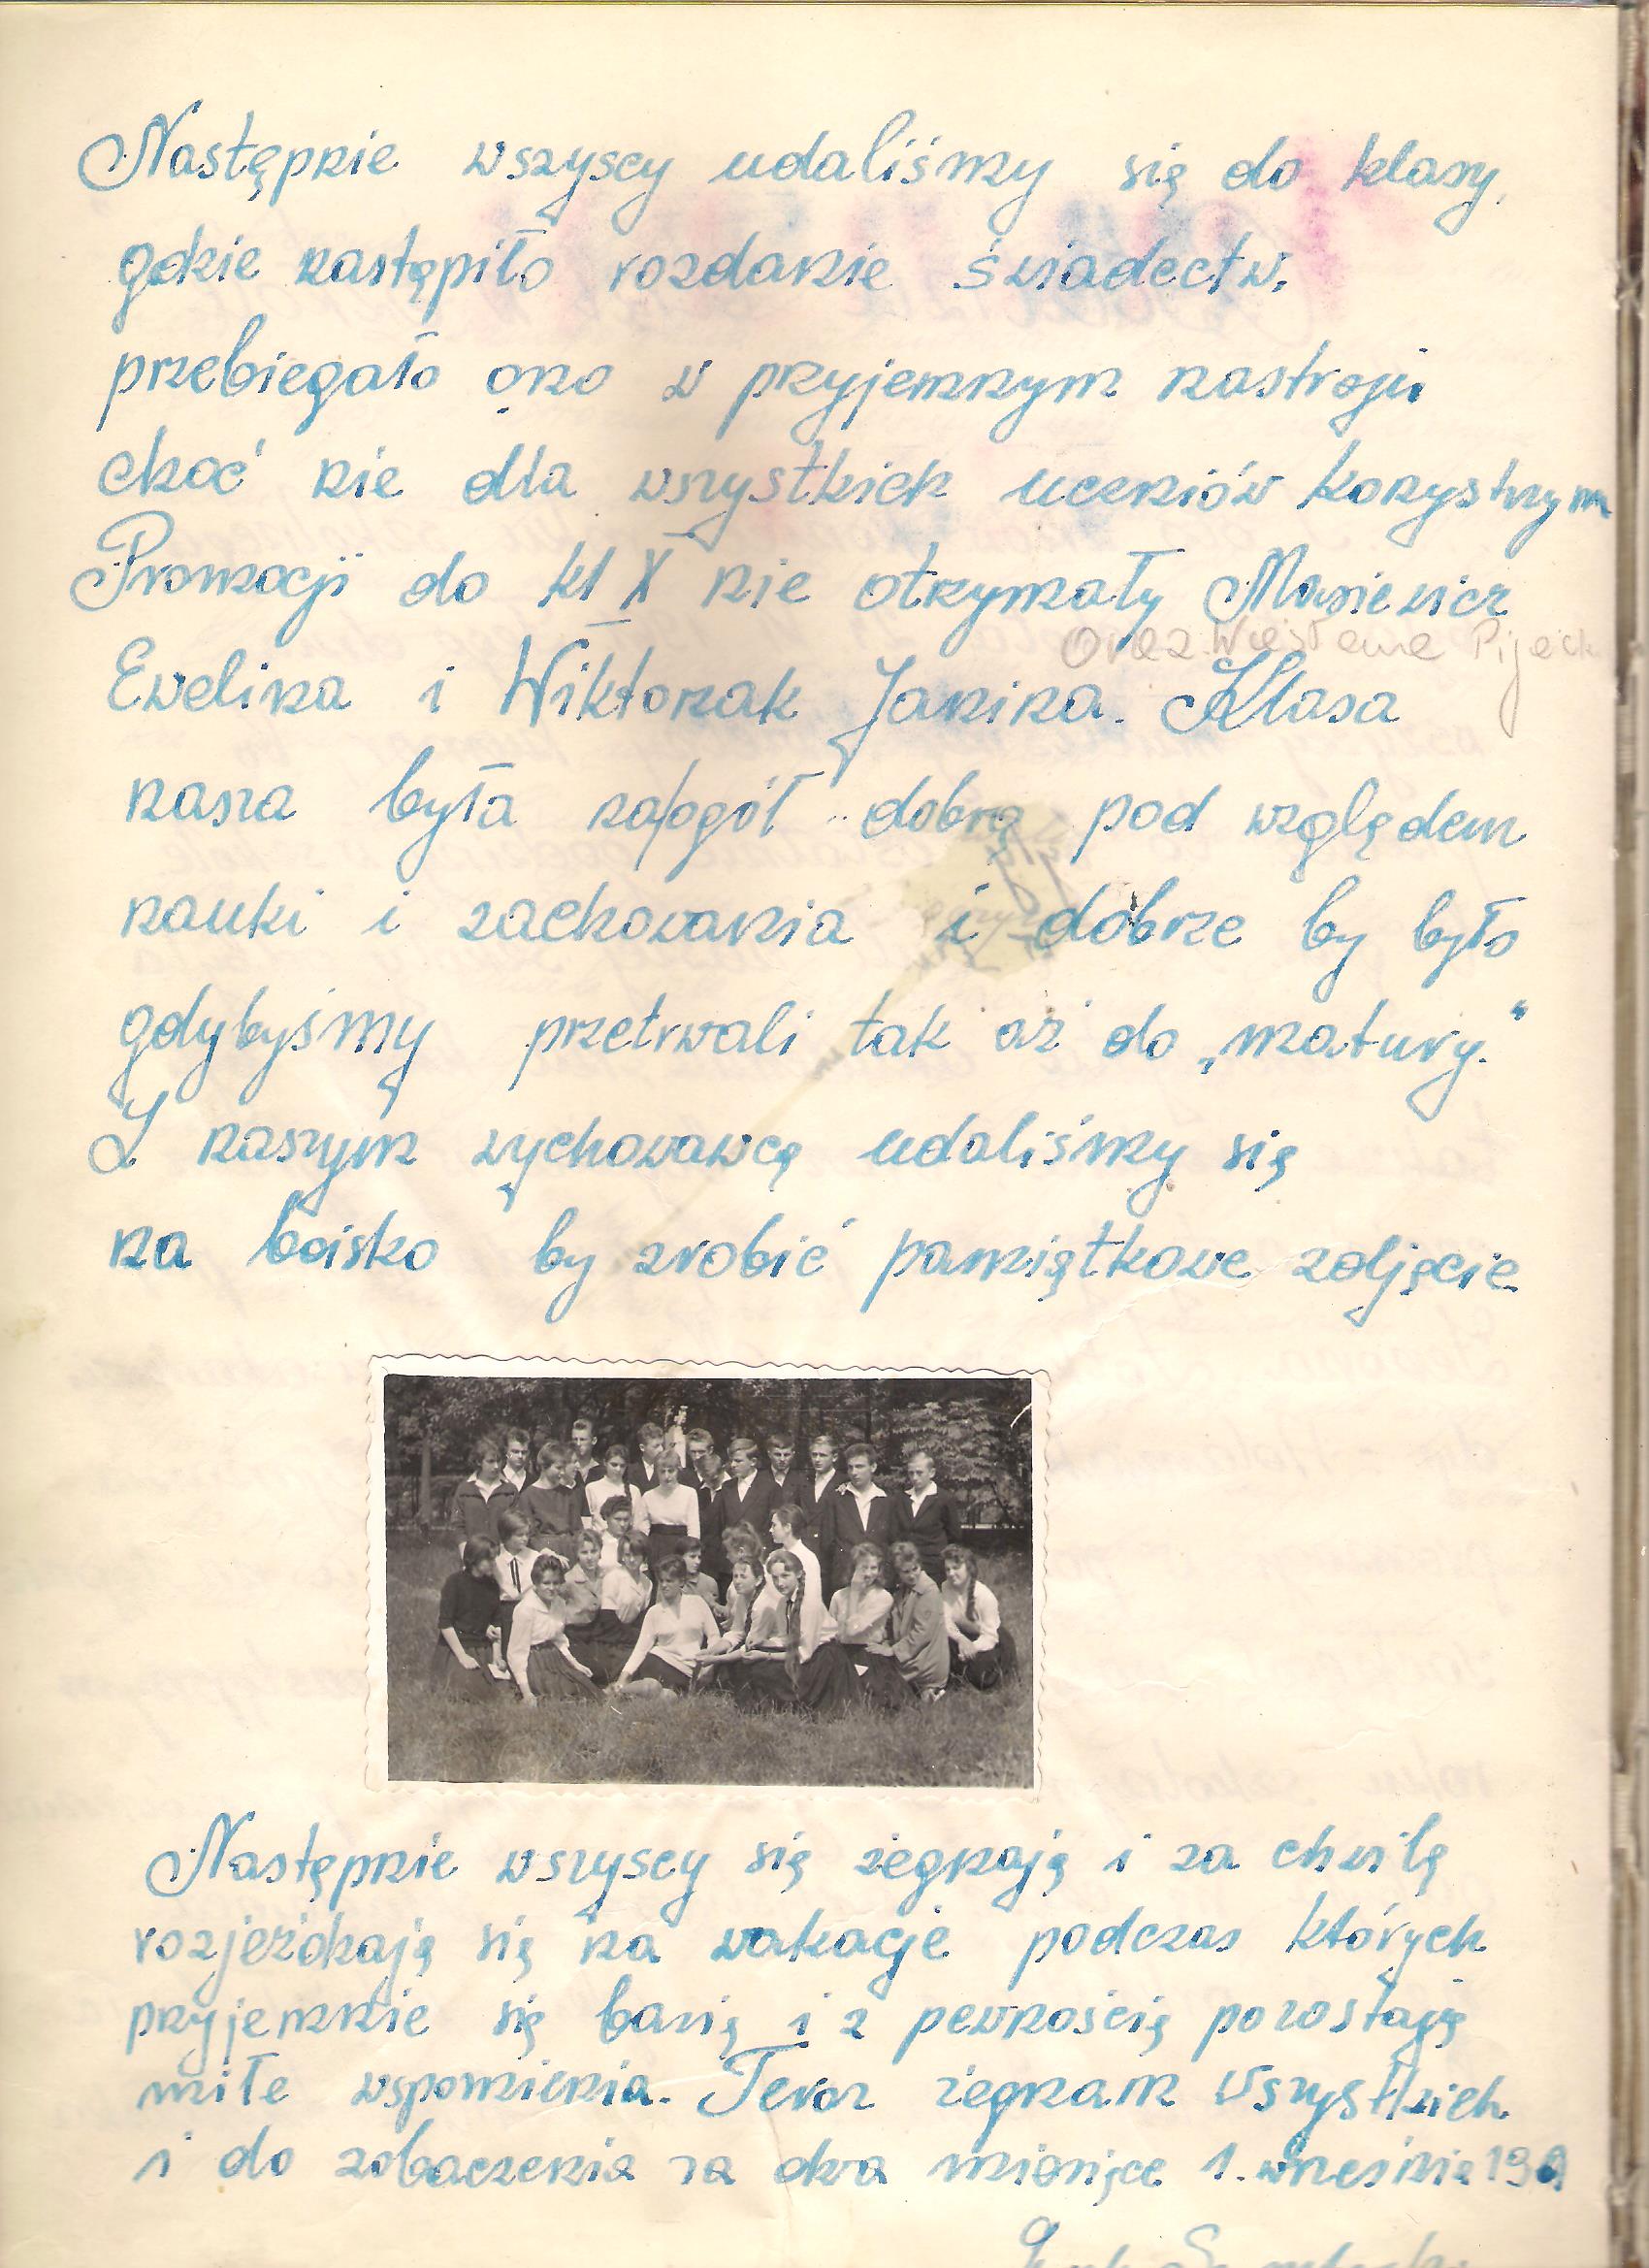 Następnie wszyscy udaliśmy się do klasy,
gdzie nastąpiło rozdanie świadectw.
przebiegało ono w przyjemnym nastroju
choć nie dla wszystkich uczniów korzystnym
Promocji do kl X nie otrzymały
oraz
Ewelina i Wiktorzak Janina. Klasa
nasza była na/ogół dobrą pod względem
nauki i zachowania i dobrze by było
gdybyśmy przetrwali tak aż do „matury."
Z naszym wychowawcą udaliśmy się
na boisko by zrobić pamiątkowe zdjęcie
Następnie wszyscy się żegnają i za chwilę
rozjeżdżają się na wakacje podczas których
przyjemnie się bawią i z pewnością pozostają
miłe wspomnienia. Teraz żegnam wszystkich
i do zobaczenia za dwa miesiące 1. września